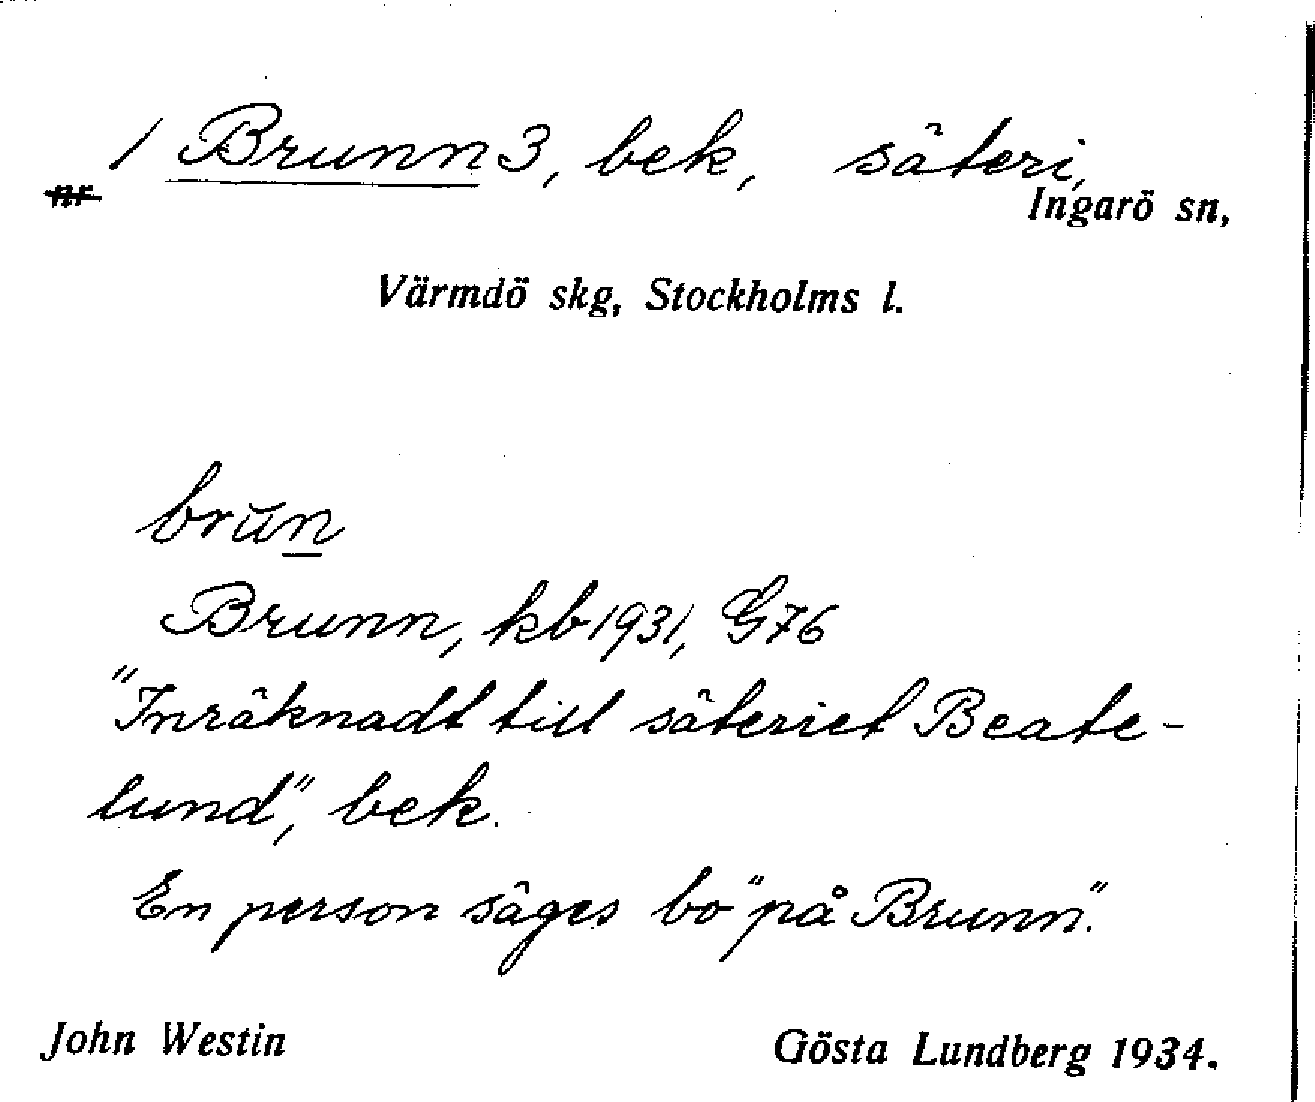 1 Brunn 3, bek, säteri,
nr
Ingarö sn,
Värmdö skg, Stockholms l.
brŭn
Brunn, kb 1931, G76
"Inräknadt till säteriet Beate-
lund", bek.
En person säges bo "på Brunn".
John Westin Gösta Lundberg 1934.